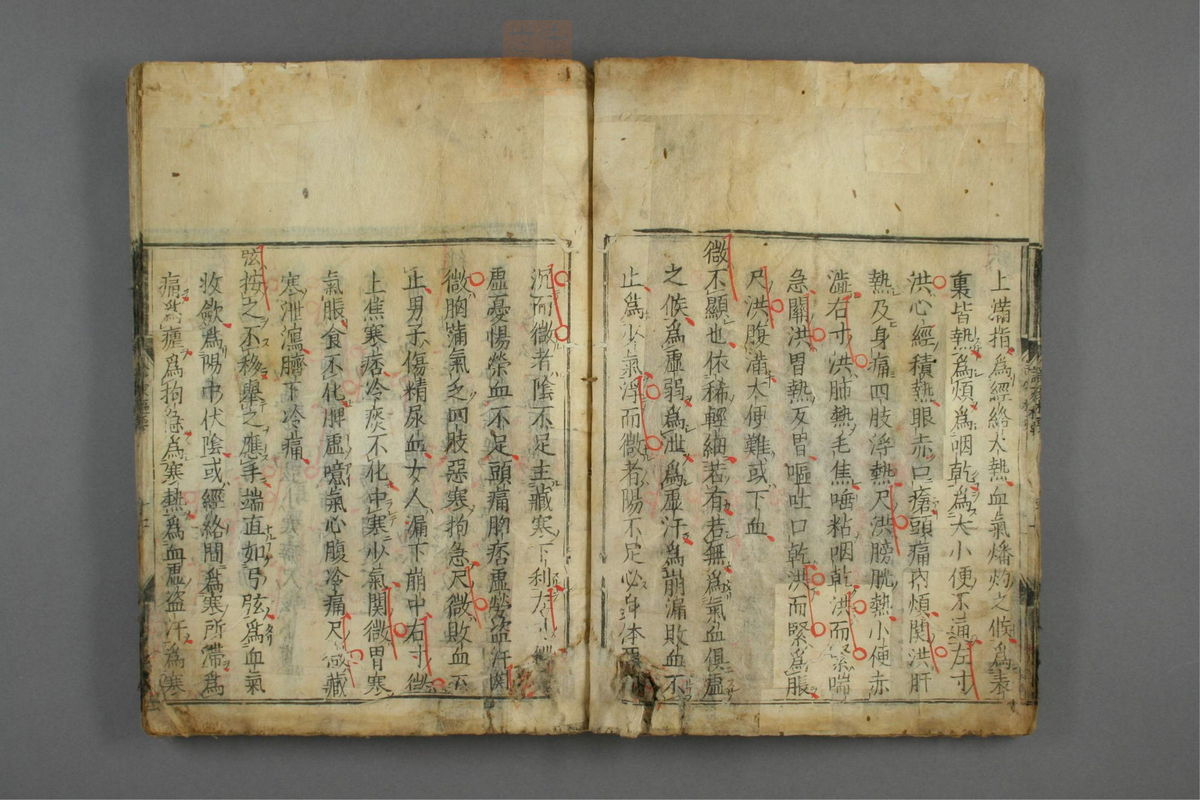 上滿指爲經絡大熱血氣燔灼之候爲表
裏皆熱爲煩爲咽乾爲大小便不通左寸
洪心經積熱眼赤口瘡頭痛內煩関洪肝
熱及身痛四肢浮熱尺洪膀胱熱小便赤
澁右寸洪肺熱毛焦唾粘咽乾洪而緊喘
急關洪胃熱反胃嘔吐口乾洪而緊爲脹
尺洪腹滿大便難或下血
微不顯也依稀輕細若有若無爲氣血俱虛
之候爲虛弱爲泄爲虛汗爲崩漏敗血不
止爲少氣浮而微者陽不足必身体惡
沉而微者陰不足主藏寒下利左寸微
虛憂惕榮血不足頭痛胷痞虛勞盗汗関
微胸滿氣乏四肢惡寒拘急尺微敗血不
止男子傷精尿血女人漏下崩中右寸微
上焦寒痞冷痰不化中寒少氣関微胃寒
氣脹食不化脾虛噫氣心腹冷痛尺微藏
寒泄瀉臍下冷痛
弦按之不移舉之應手端直如弓弦爲血氣
收歛爲陽中伏陰或經絡間爲寒所滯爲
痛爲瘧爲拘急爲寒熱爲血虛盗汗爲寒